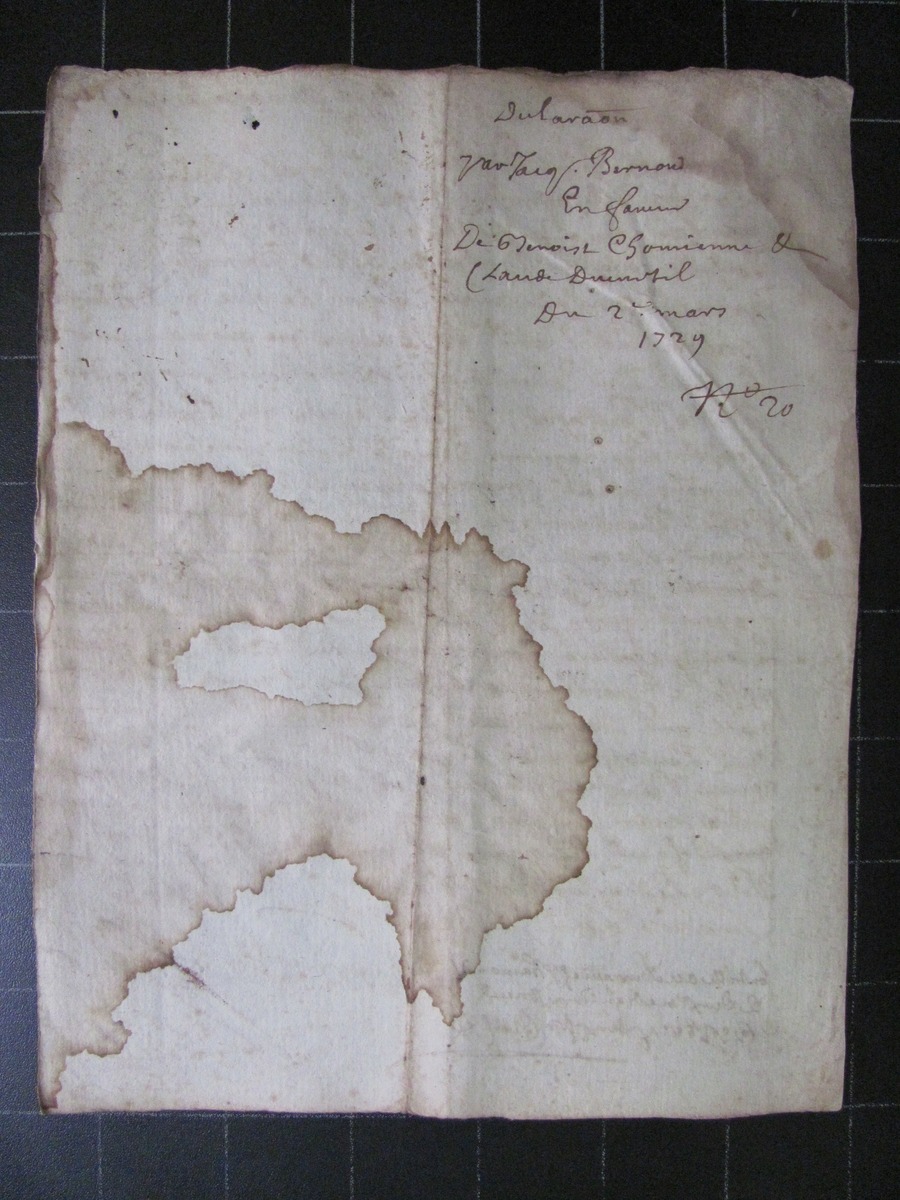 Declara͠on
par Jacq. Bernou
En faveur
De Benoist Chomienne &
Claude Dumosil
Du 2e. mars
1729
No 20